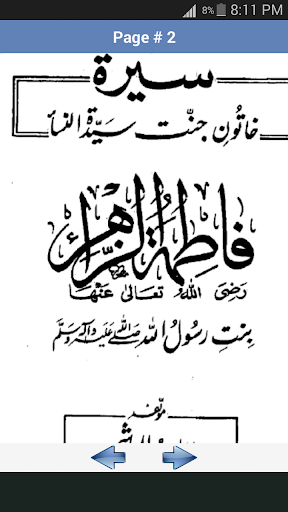 8% 8:11 PM
Page # 2
سیرۃ
خاتونِ جنّت سیّدۃ النسآء
فاطمۃ الزہراء
رَضِیَ اللہُ تَعَالیٰ عَنْہَا
بنتِ رسولُ اللہ صلی اللہ علیہ وآلہٖ وسلم
مؤلفہ